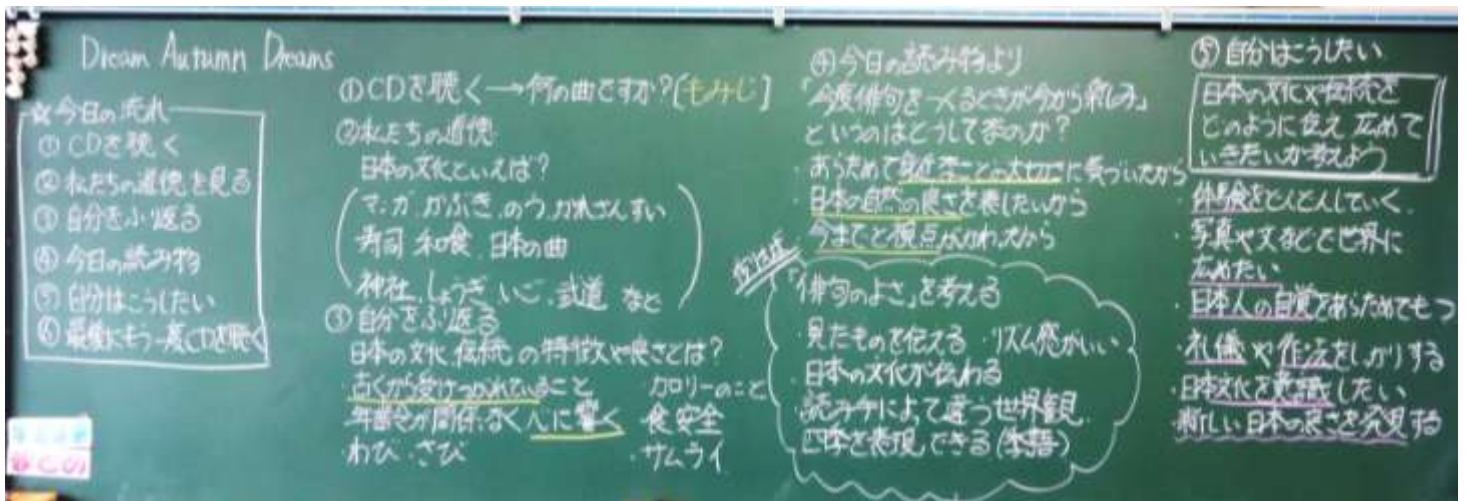 Dream Autumn Dreams
☆今日の流れ
① CDを聴く
② 私たちの道徳を見る
③ 自分をふり返る
④ 今日の読み物
⑤ 自分はこうしたい
⑥ 最後にもう一度CDを聴く
①CDを聴く→何の曲ですか?[もみじ]
②私たちの道徳
日本の文化といえば?
マンガ.かぶき.のう.かれさんすい
寿司 和食.日本の曲
神社.しょうぎ いご.武道 など
③ 自分をふり返る
日本の文化、伝統の特徴や良さとは?
・古くから受けつがれていること
年齢が関係なく人に響く
わび・さび
カロリーのこと
食安全
・サムライ
④今日の読み物より
「今度俳句をつくるときが今から楽しみ」
というのはどうして なのか?
・あらためて身近なことの大切さに気づいたから
・日本の自然の良さを表したいから
今までと視点がかわったから
「俳句のよさ」を考える
・見たものを伝える ・リズム感がいい
・日本の文化が伝わる
・読み手によって違う世界観
四季を表現できる(季語)
⑤ 自分はこうしたい
日本の文化や伝統を
どのように伝え 広めて
いきたいか考えよう
・体験をどんどんしていく.
・写真や文などで世界に
広めたい
・日本人の自覚をあらためてもつ
・礼儀や作法をしっかりする
・日本文化を意識したい
・新しい日本の良さを発見する